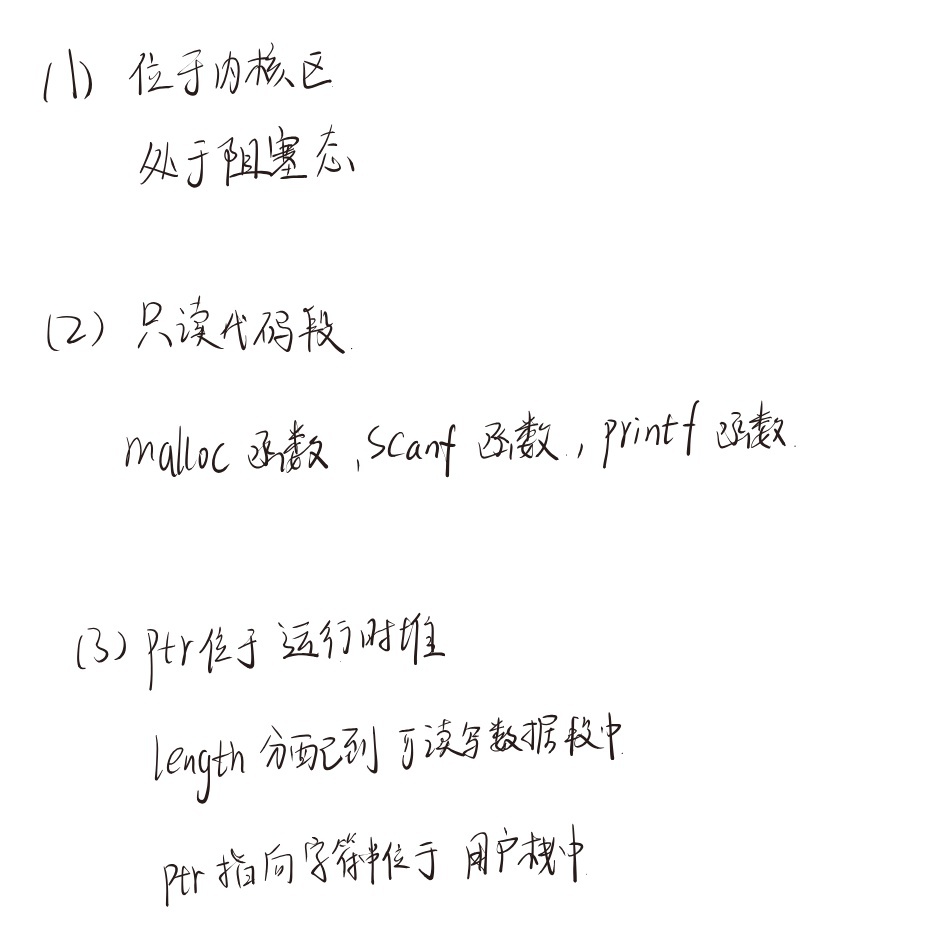 (1) 位于内核区
处于阻塞态
(2) 只读代码段.
malloc 函数,scanf 函数,printf 函数.
(3) ptr位于 运行时堆
length 分配到 可读写数据段中.
ptr 指向字符串位于 用户栈中